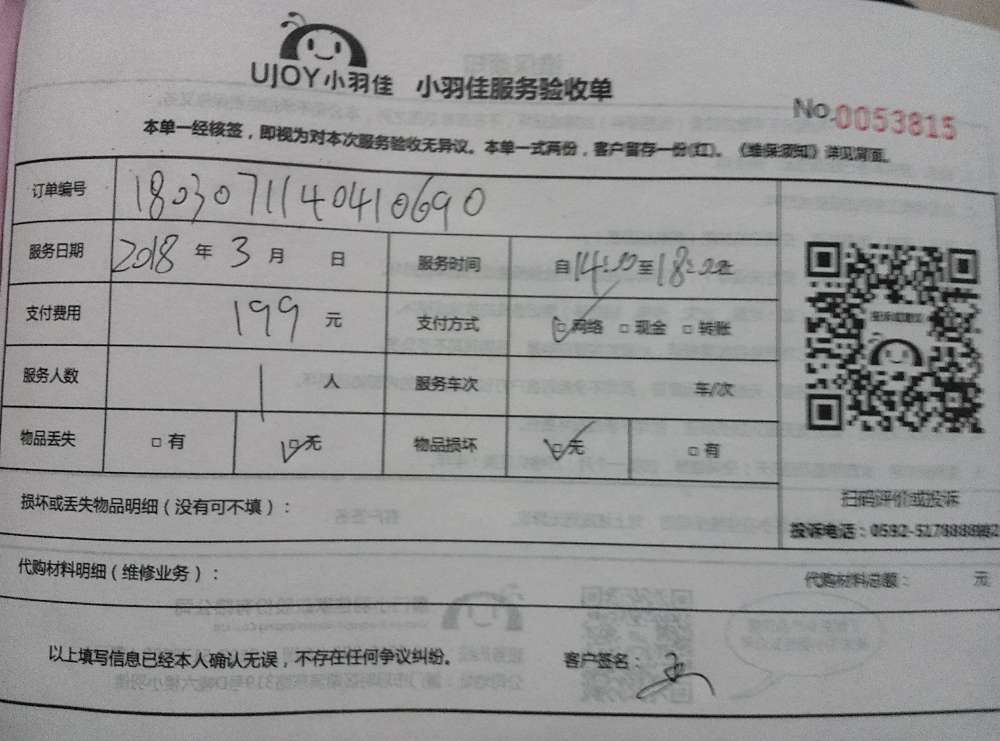 UJOY小羽佳 小羽佳服务验收单
No.0053815
本单一经核签，即视为对本次服务验收无异议。本单一式两份，客户留存一份(红)。《维保须知》详见背面。
订单编号 180307114041069​0
服务日期 2018 年 3 月 日 服务时间 自14:00至18:00止
支付费用 199 元 支付方式 □网络 □现金 □转账
服务人数 1 人 服务车次 车/次
物品丢失 □有 □无 物品损坏 □无 □有
损坏或丢失物品明细（没有可不填）：
扫码评价或投诉
投诉电话：0592-5178888
代购材料明细（维修业务）： 代购材料总额： 元
以上填写信息已经本人确认无误，不存在任何争议纠纷。 客户签名：